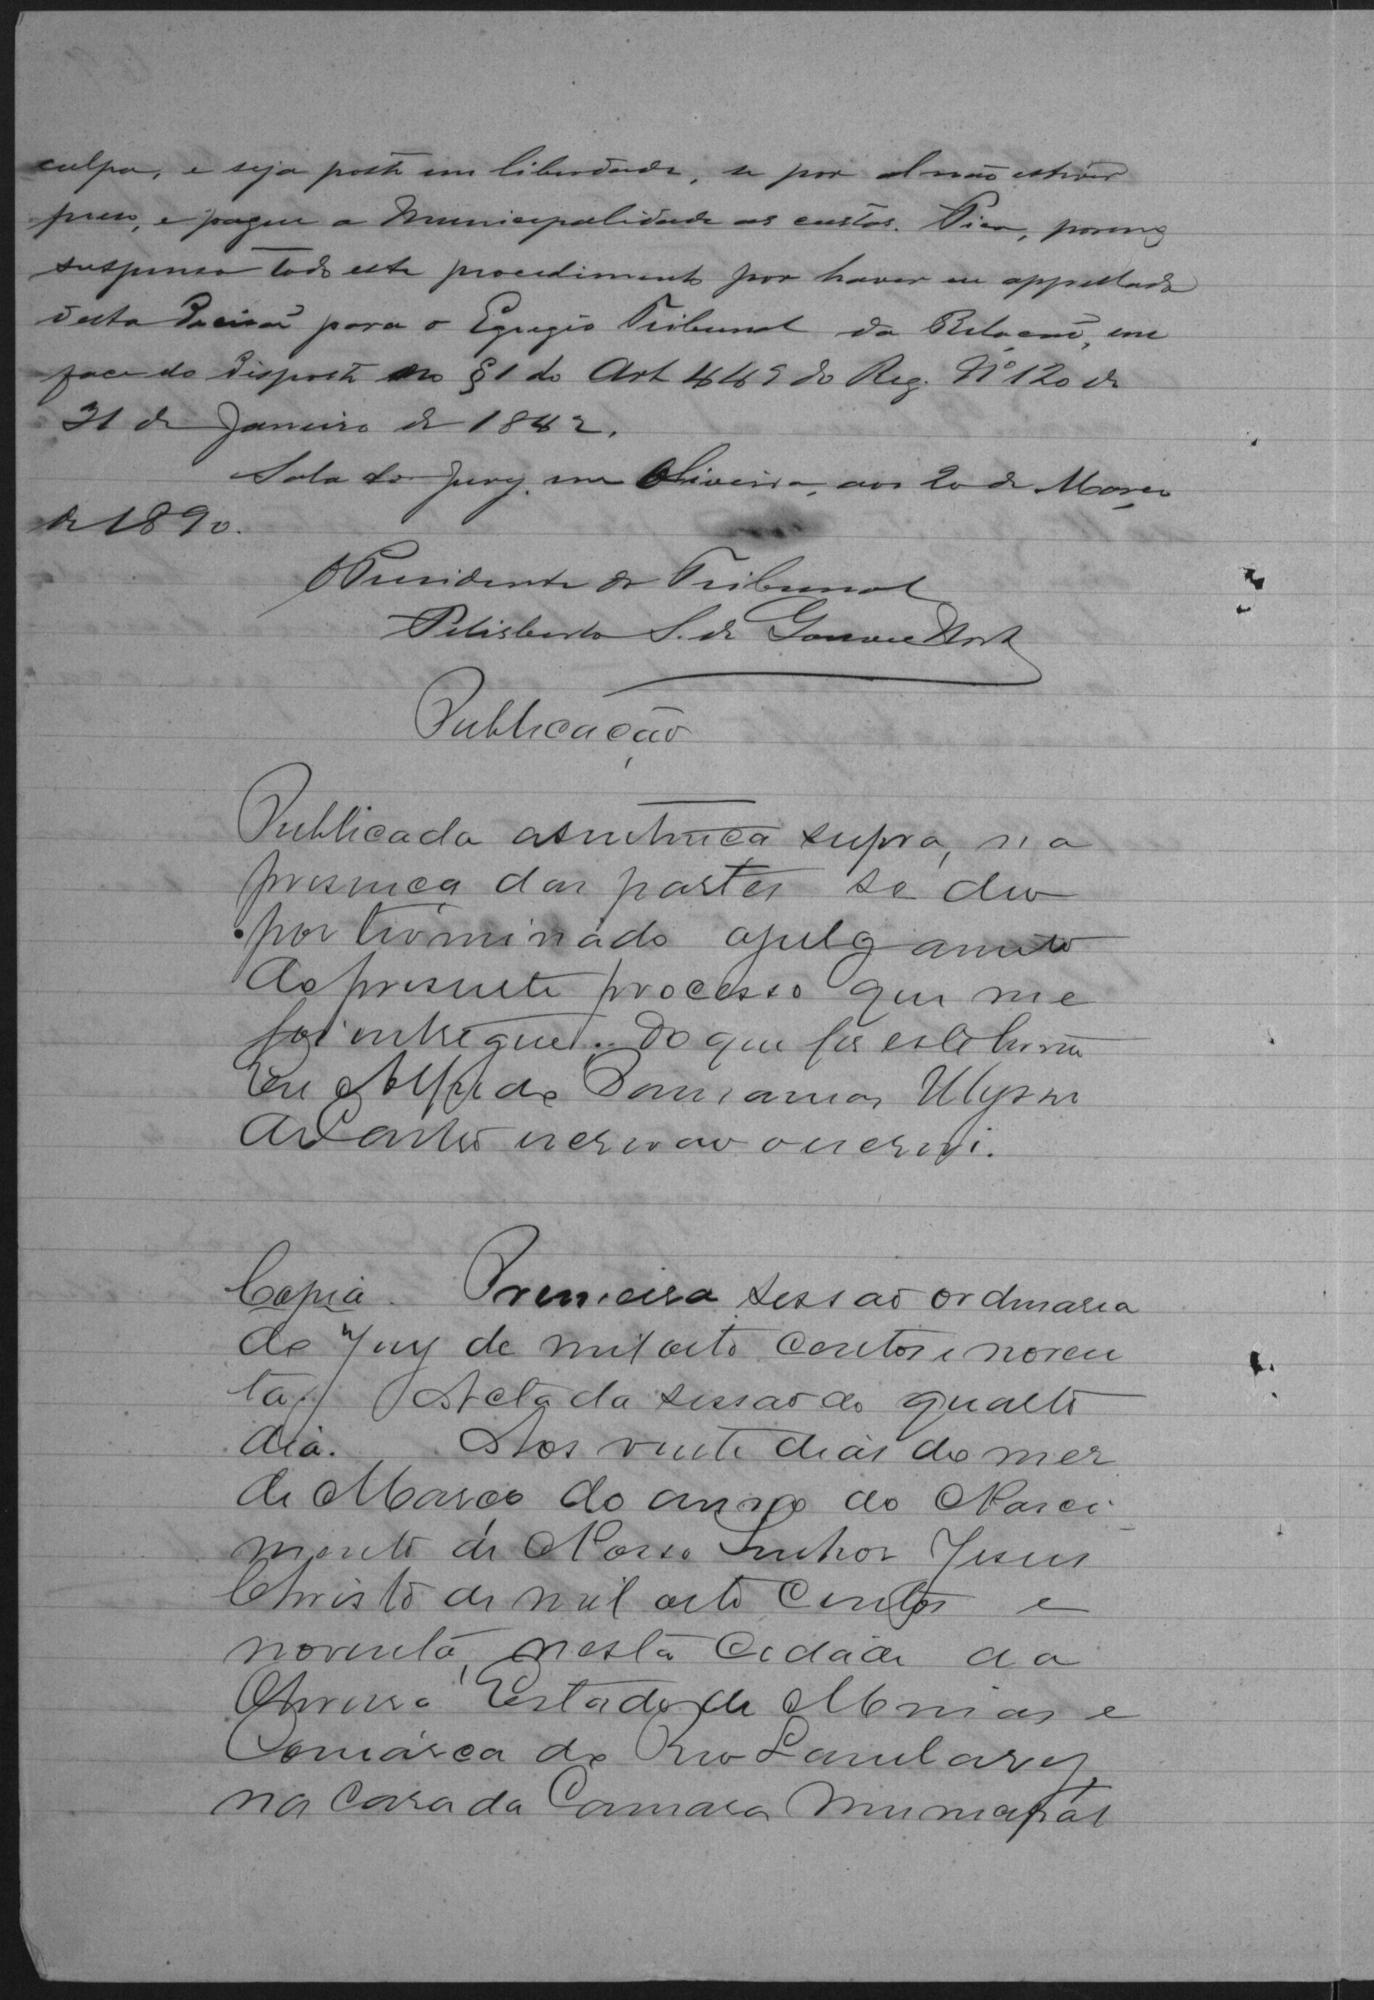 culpa, e seja posto em liberdade, se por al não estiver
preso, e pague a Municipalidade as custas. Fica, porem,
suspenso todo este procedimento por haver eu appellado
desta Decisão para o Egregio Tribunal da Relação, em
face do disposto no §1 do Art 449 do Reg. Nº 120 de
31 de Janeiro de 1842.
Sala do Jury, em Oliveira, aos 20 de Março
de 1890.
O Presidente do Tribunal
Felisberto S. de Gouvea Horta
Publicação
Publicada a sentença supra, na
presença das partes se deu
por terminado o julgamento
do presente processo que me
foi entregue. Do que fiz este termo
Eu Alfredo Ulysses
de Castro escrivão o escrevi.
Copia. Primeira sessao ordinaria
do Jury de mil oito centos e noven
ta. Acta da sessao do quarto
dia. Aos vinte dias do mez
de Março do anno do Nasci-
mento de Nosso Senhor Jesus
Christo de mil oito centos e
noventa, nesta Cidade da
Oliveira Estado de Minas e
Comárca do Rio Lambary,
na casa da Camara Municipal